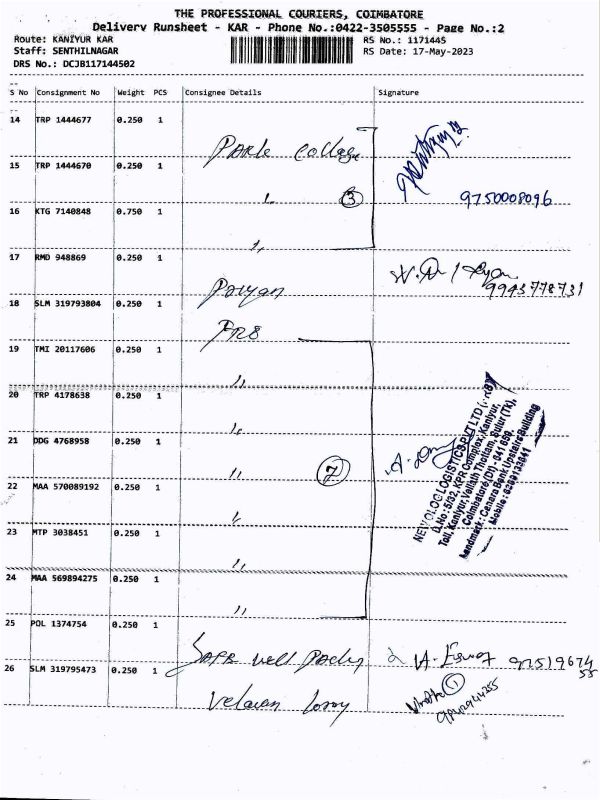 THE PROFESSIONAL COURIERS, COIMBATORE
Delivery Runsheet - KAR - Phone No.:0422-3505555 - Page No.:2
Route: KANIYUR KAR
RS No.: 1171445
Staff: SENTHILNAGAR
RS Date: 17-May-2023
DRS No.: DCJB117144502
S No Consignment No Weight PCS Consignee Details Signature
14 TRP 1444677 0.250 1
Park College
15 TRP 1444670 0.250 1
〃 3 9750008096
16 KTG 7140848 0.750 1
〃
17 RMD 948869 0.250 1
9943778731
18 SLM 319793804 0.250 1
19 TMI 20117606 0.250 1
〃
20 TRP 4178638 0.250 1
〃
21 DDG 4768958 0.250 1
〃 7
22 MAA 570089192 0.250 1
〃
23 MTP 3038451 0.250 1
〃
24 MAA 569894275 0.250 1
〃
NEWOLOG LOGISTICS PVT LTD
D.No: 5/32, KPR Complex, Kaniyur,
Toll, Kaniyur, Vellath Thottam, Sulur (TK),
Coimbatore (DT) - 641 659.
Landmark: Canara Bank Upstairs Building
25 POL 1374754 0.250 1
26 SLM 319795473 0.250 1
Velavan